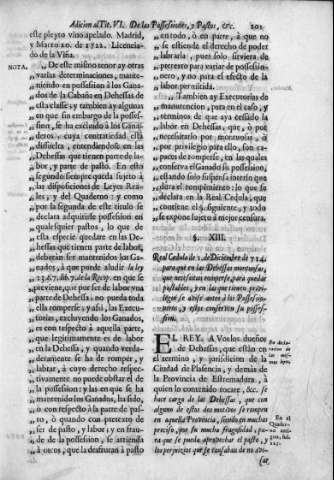 Adicion al Tit. VI. De las Possessiones, y Pastos, &c. 201
este pleyto vino apelado. Madrid,
y Marzo 20. de 1722. Licencia-
do de la Viña.
NOTA.
„ De este mismo tenor ay otras
„ varias determinaciones, mante-
„ niendo en possession à los Gana-
„ dos de la Cabaña en Dehessas de
„ esta classe; y tambien ay algunas
„ en que sin embargo de la posses-
„ sion, se ha excluìdo à los Gana-
„ deros, cuya contrariedad està
„ dissuelta, entendiendose en las
„ Dehessas que tienen parte de la-
„ bor, y parte de pasto. En esta
„ segundo siempre queda sujeto à
„ las disposiciones de Leyes Rea-
„ les, y del Quaderno; y como
„ por la segunda de este titulo se
„ declara adquirirse possession en
„ qualesquier pastos, lo que de
„ esta especie quedare en las De-
„ hessas que tienen parte de labor,
„ deberàn ser mantenidos los Ga-
„ nados, à que puede añadir la ley
„ 23. 6. 7. lib. 7. de la Recop. en que se
„ previene, que por ser de labor vna
„ parte de Dehessa, no pueda toda
„ ella romperse; y assi, las Execu-
„ torias, excluyendo los Ganados,
„ es con respecto à aquella parte,
„ que legitimamente es de labor
„ en la Dehessa, y quando verda-
„ deramente se ha de romper, y
„ labrar, à cuyo derecho respec-
„ tivamente no puede obstar el de
„ la possession: y las en que se ha
„ mantenido los Ganados, ha sido,
„ ò con respecto à la parte de pas-
„ to, ò quando con pretexto de
„ ser de pasto, y labor; y en frau-
„ de de la possession, se arrienda
„ à otros, que la desfrutan à pasto
„ en todo, ò en parte, à que no
„ se estiende el derecho de poder
„ labrarla, pues solo sirviera de
„ pretexto para variar de possessio-
„ nero, y no para el efecto de la
„ labor permitida.
„ Tambien ay Executorias de
„ manutencion, para en el caso, y
„ terminos de que aya cessado la
„ labor en Dehessas, que, ò por
„ necessitarlo por montuosa, ò
„ por privilegio para ello, son ca-
„ paces de romperse, en las quales
„ conserva el Ganado su possession,
„ estando solo suspensa interin que
„ dura el rompimiento: lo que se
„ declara en la Real Cedula, que
„ contiene el §. siguiente, y todo
„ se expone sujeto à mejor censura.
§. XIII.
Real Cedula de 2. de Diciembre de 714.
para que en las Dehessas montuosas,
que necessitan romperse, para quedar
pastables, y en las que tienen privi-
legio se avise antes à los Possessio-
neros, y estos conserven su posses-
sion.
EL REY. A Vos los dueños
de Dehessas, que estàn en
el termino, y jurisdiccion de la
Ciudad de Plasencia, y demàs de
la Provincia de Estremadura, à
quien lo contenido tocare, &c. se
hace cargo de las Dehessas, que con
alguno de estos dos motivos se rompen
en aquella Provincia, siendo en muchas
preciso, por su mucha fragosidad, pa-
ra que se pueda aprovechar el pasto, y
los perjuicios que se causaban de no avi-
En el
Quader-
no